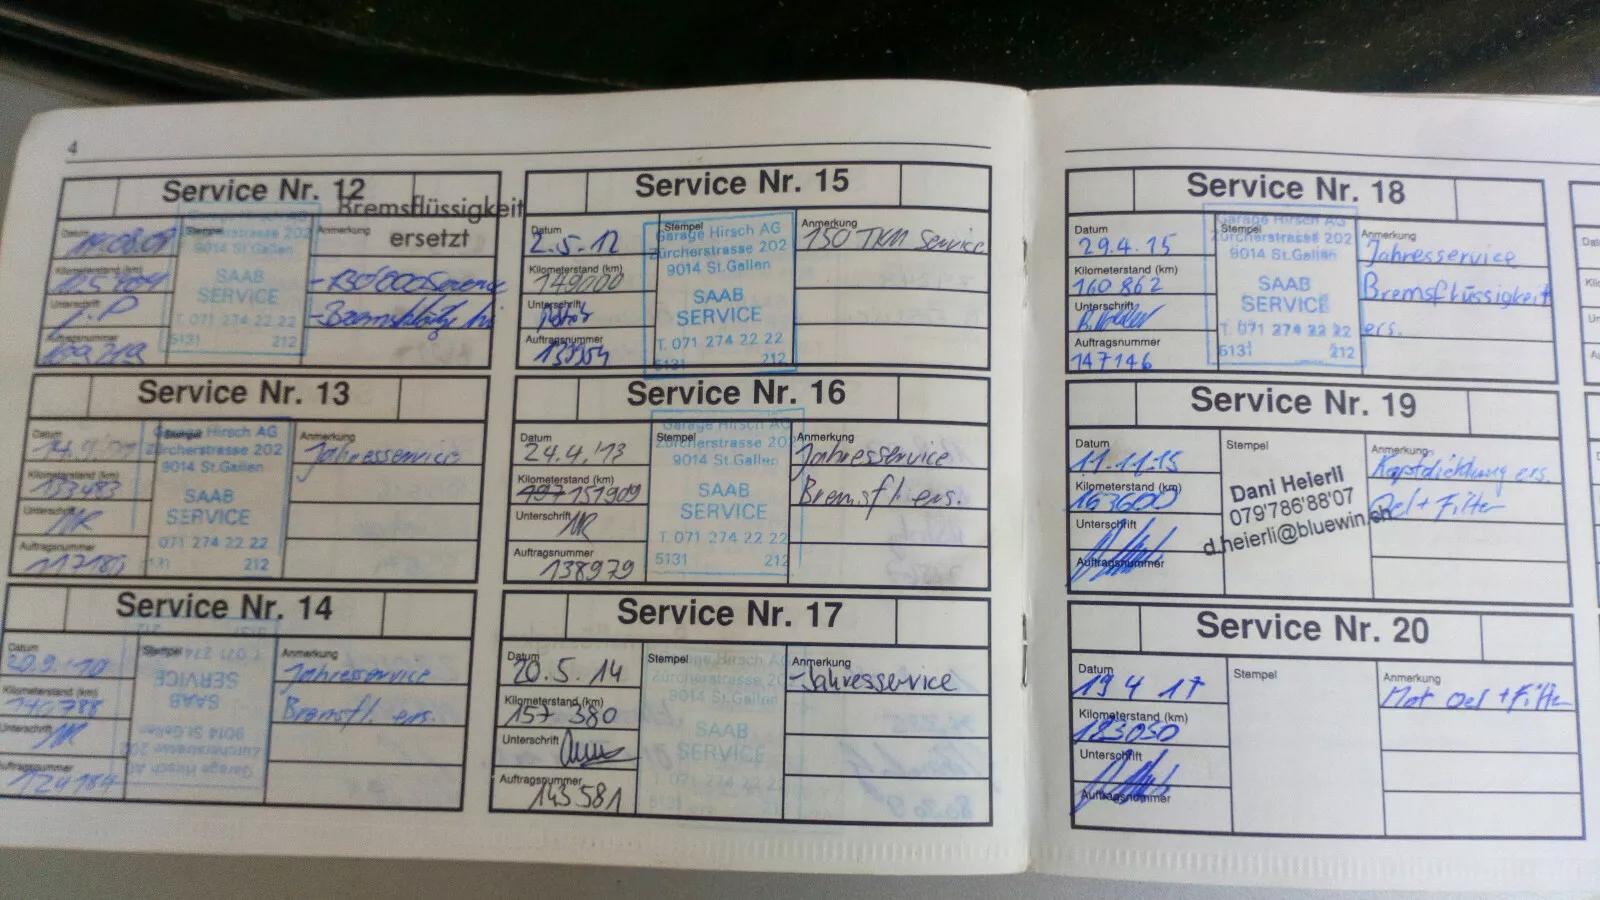 4
Service Nr. 12
Bremsflüssigkeit
ersetzt
Datum
Stempel
Anmerkung
Zürcherstrasse 202
9014 St.Gallen
SAAB
SERVICE
T. 071 274 22 22
5131 212
Kilometerstand (km)
Unterschrift
Auftragsnummer
109219
Service Nr. 13
Datum
Stempel
Garage Hirsch AG
Zürcherstrasse 202
9014 St.Gallen
SAAB
SERVICE
071 274 22 22
212
Anmerkung
Jahresservice
Kilometerstand (km)
133483
Unterschrift
Auftragsnummer
Service Nr. 14
Datum
20.9.'10
Stempel
Garage Hirsch AG
Zürcherstrasse 202
9014 St.Gallen
SAAB
SERVICE
T. 071 274
5131 212
Anmerkung
Jahresservice
Bremsfl. ers.
Kilometerstand (km)
Unterschrift
Auftragsnummer
124184
Service Nr. 15
Datum
2.5.12
Stempel
Garage Hirsch AG
Zürcherstrasse 202
9014 St.Gallen
SAAB
SERVICE
T. 071 274 22 22
5131 212
Anmerkung
150 TKM Service
Kilometerstand (km)
149000
Unterschrift
Auftragsnummer
Service Nr. 16
Datum
24.4.'13
Stempel
Garage Hirsch AG
Zürcherstrasse 202
9014 St.Gallen
SAAB
SERVICE
T. 071 274 22 22
5131 212
Anmerkung
Jahresservice
Bremsfl ers.
Kilometerstand (km)
151909
Unterschrift
Auftragsnummer
138979
Service Nr. 17
Datum
20.5.14
Stempel
Garage Hirsch AG
Zürcherstrasse 20
9014 St.Gallen
SAAB
SERVICE
T. 071 274 22 2
5131 212
Anmerkung
-Jahresservice
Kilometerstand (km)
157 380
Unterschrift
Auftragsnummer
143581
Service Nr. 18
Datum
29.4.15
Stempel
Garage Hirsch AG
Zürcherstrasse 202
9014 St.Gallen
SAAB
SERVICE
T. 071 274 22 22
5131 212
Anmerkung
Jahresservice
Bremsflüssigkeit
ers.
Kilometerstand (km)
160 862
Unterschrift
Auftragsnummer
147146
Service Nr. 19
Datum
11.11.15
Stempel
Dani Heierli
079'786'88'07
d.heierli@bluewin.ch
Anmerkung
Kopfdichtung ers.
Oel + Filter
Kilometerstand (km)
163600
Unterschrift
Auftragsnummer
Service Nr. 20
Datum
19 4 17
Stempel
Anmerkung
Mot Oel + Filter
Kilometerstand (km)
183050
Unterschrift
Auftragsnummer